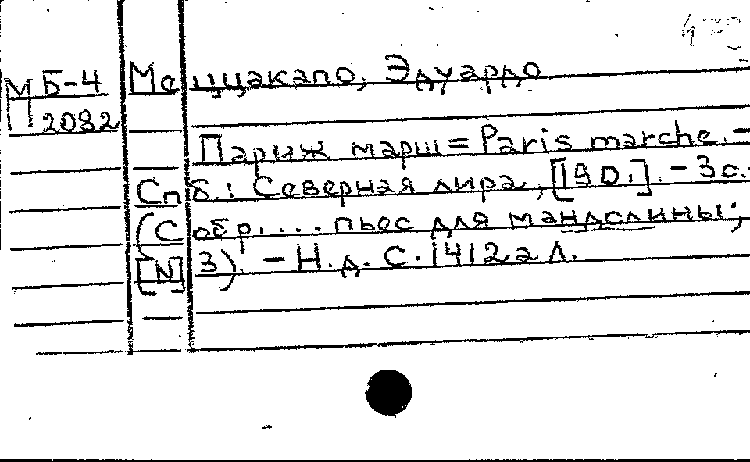 М Б-4 Меццакапо, Эдуардо
П 2082
Париж марш = Paris marche. -
Спб.: Северная лира, [190.]. - 3с.
(Собр.... пьес для мандолины;
[N] 3). - Н.д. С.1412а Л.